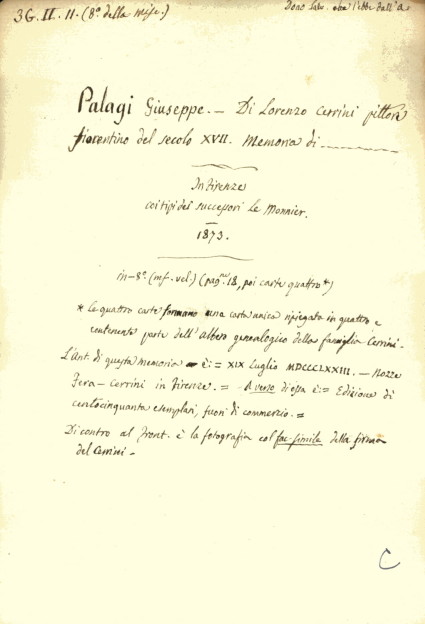 3G. II. 11. (8.ª della Misc.)
Dono Sabr. ebbe dall'A.
Palagi Giuseppe. — Di Lorenzo Cerrini pittore
fiorentino del secolo XVII. Memoria di
In Firenze
coi tipi dei successori Le Monnier.
1873.
in-8.º (mf. vel.) (pag.ne 18, poi carte quattro*)
* Le quattro carte formano una carta unica ripiegata in quattro e
contenente parte dell'albero genealogico della famiglia Cerrini.
L'Ant. di questa memoria è: = XIX Luglio MDCCCLXXIII. — Nozze
Fera — Cerrini in Firenze. = A verso di essa è: = Edizione di
centocinquanta esemplari, fuori di commercio. =
Di contro al Front. è la fotografia col fac-simile della firma
del Cerrini —
C